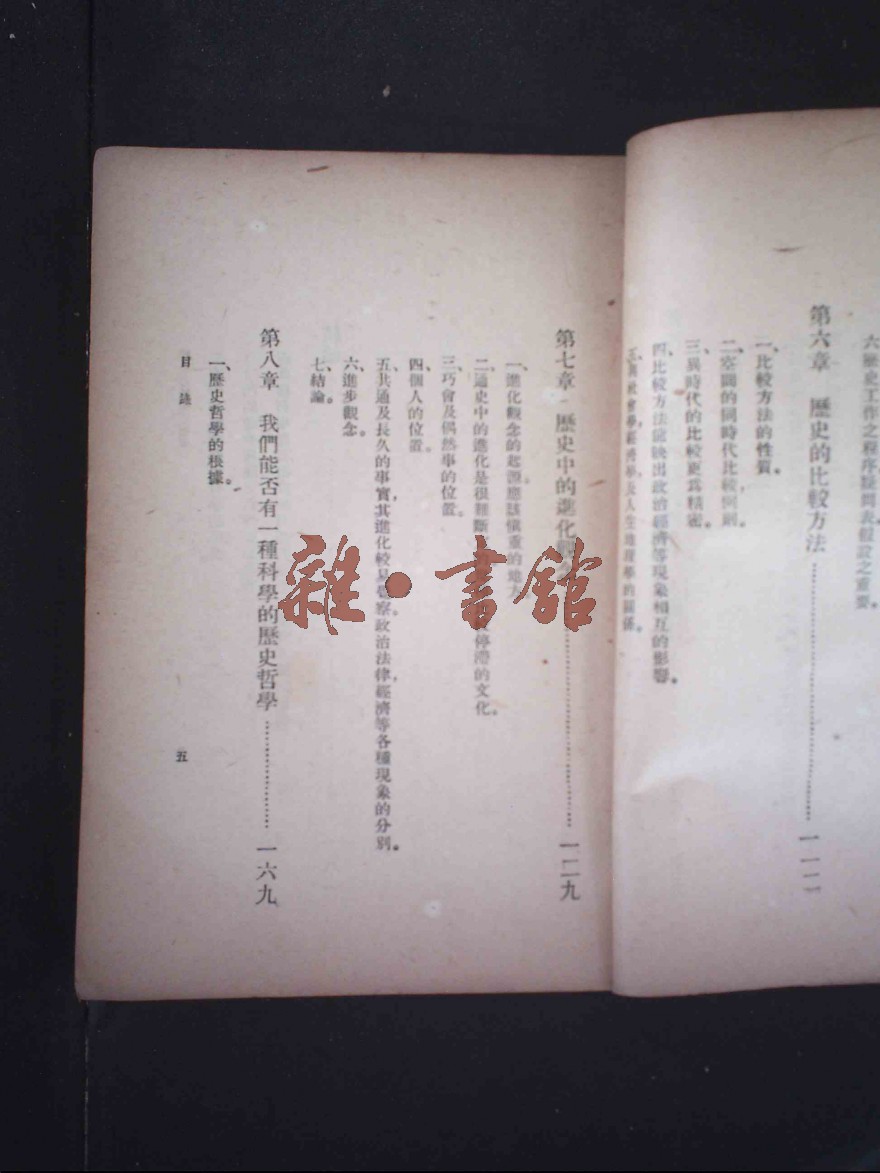 六、歷史工作之程序疑問表假設之重要。
第六章 歷史的比較方法 一一一
一、比較方法的性質。
二、空間的同時代比較例則
三、異時代的比較更為精密。
四、比較方法能映出政治經濟等現象相互的影響。
五、與社會學經濟學及人生地理學的關係。
第七章 歷史中的進化 一二九
一、進化觀念的起源應該慎重的地方
二、通史中的進化是很難斷 停滯的文化。
三、巧會及偶然事的位置。
四、個人的位置。
五、共通及長久的事實,其進化較易 察。政治法律,經濟等各種現象的分別。
六、進步觀念。
七、結論。
第八章 我們能否有一種科學的歷史哲學 一六九
一、歷史哲學的根據。
目錄
五
雜·書館